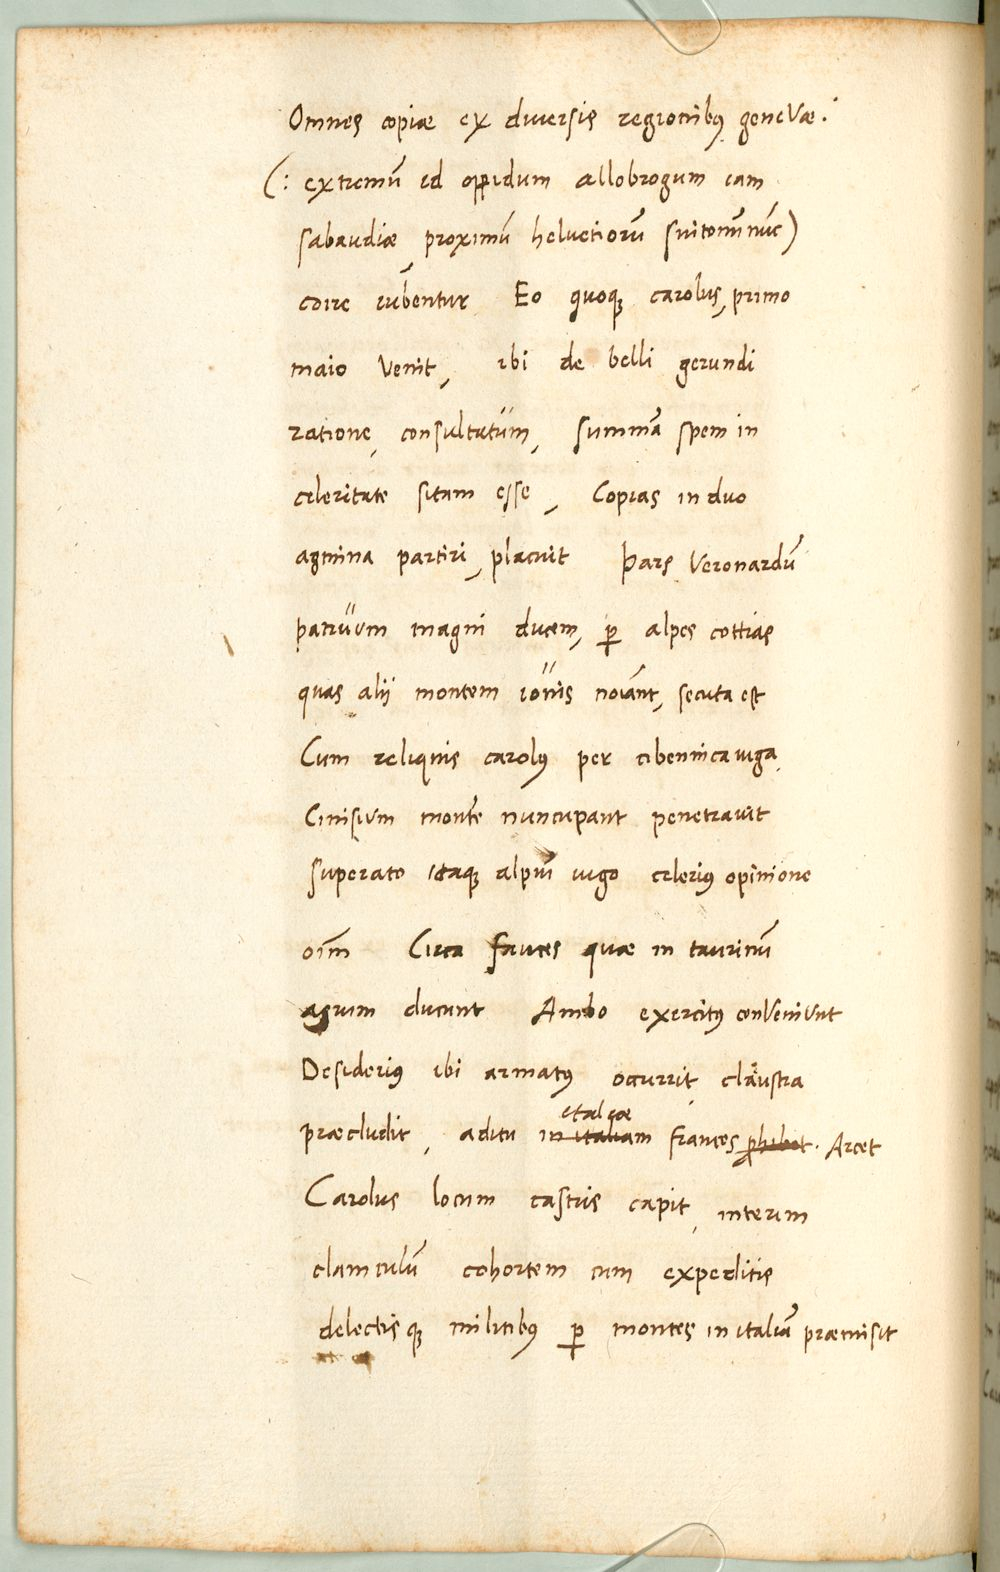 Omnes copiæ ex diversis regionibꝰ geneVæ.
(: extremū id oppidum allobrogum iam
sabaudiæ proximū helvetiorū suitonū nūc)
coire iubentur Eo quoqꝫ carolus, primo
maio Venit, ibi de belli gerundi
ratione, consultatum, summā spem in
celeritate sitam esse, Copias in duo
agmina partiri, placuit Pars Veronardū
patruum magni ducem, ꝑ alpes cottias
quas alij montem iovis noīant, secuta est
Cum reliquis carolꝰ per iuga,
Cinisium montē nuncupant penetravit
superato itaqꝫ alpiū iugo celeriꝰ opinione
oīm Circa fauces quæ in taurinū
agrum ducunt Ambo exercitꝰ conVeniVnt
Desideriꝰ ibi armatꝰ ocurrit, claustra
præcludit, aditu in italiam italiæ francos ꝓhibet. Arcet
Carolus locum castris capit, interim
clamculū cohortem cum expeditis
delectis qꝫ militibꝰ ꝑ montes in italiā præmisit